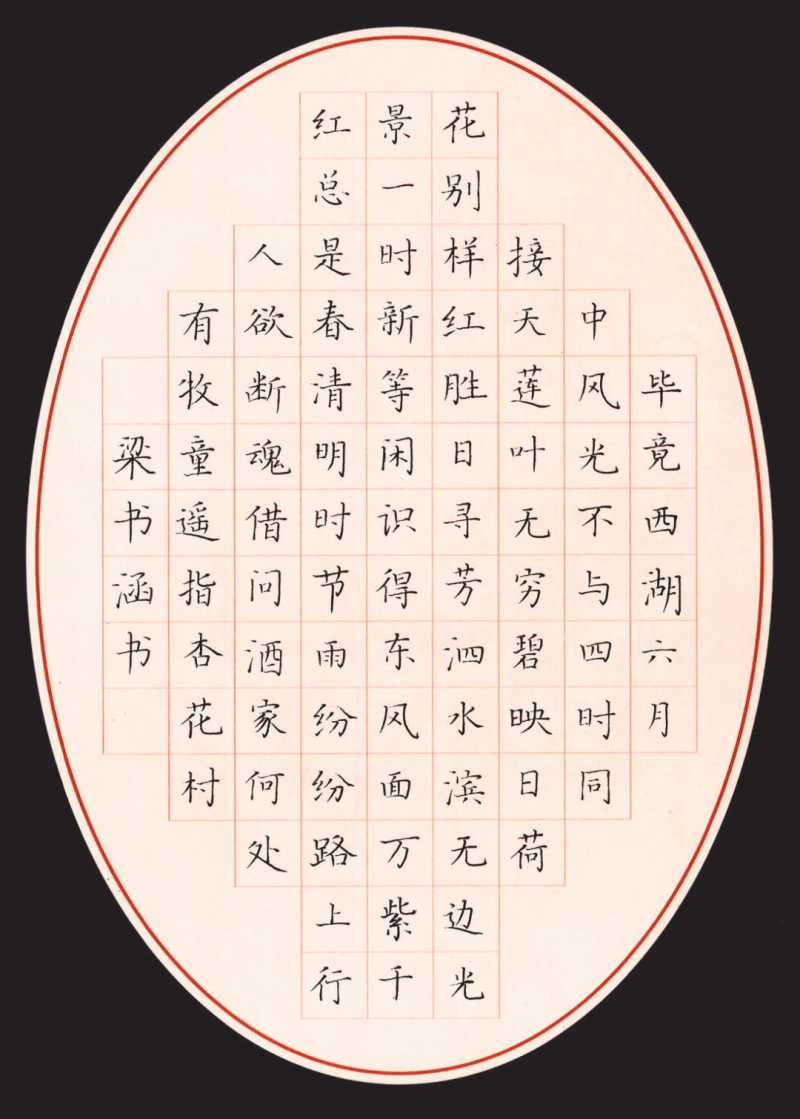 毕竟西湖六月
中风光不与四时同
接天莲叶无穷碧映日荷
花别样红胜日寻芳泗水滨无边光
景一时新等闲识得东风面万紫千
红总是春清明时节雨纷纷路上行
人欲断魂借问酒家何处
有牧童遥指杏花村
梁书涵书